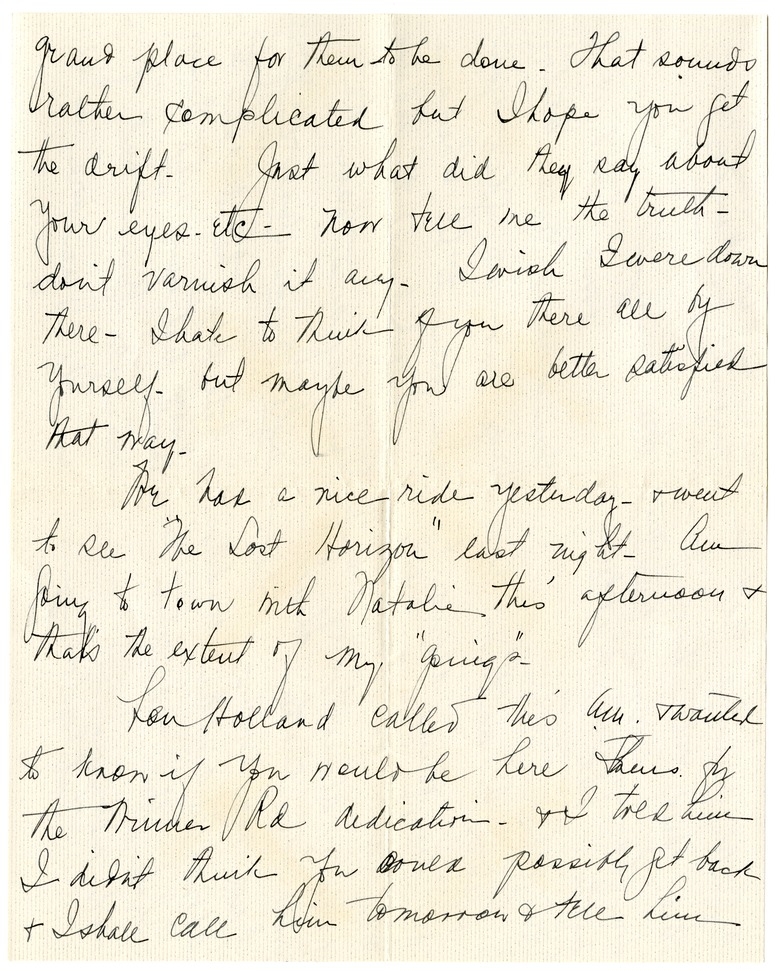 grand place for them to be done. That sounds
rather complicated but I hope you get
the drift. Just what did they say about
your eyes. etc. now tell me the truth -
don't varnish it any. I wish I were down
there - I hate to think of you there all by
yourself. but maybe you are better satisfied
that way.
We had a nice ride yesterday - & went
to see "The Lost Horizon" last night - Am
going to town with Natalie this afternoon &
that's the extent of my "goings" -
Lou Holland called this a.m. & wanted
to know if you would be here Thurs. for
the Winner Rd dedication - & I told him
I didn't think you could possibly get back
& I shall call him tomorrow & tell him